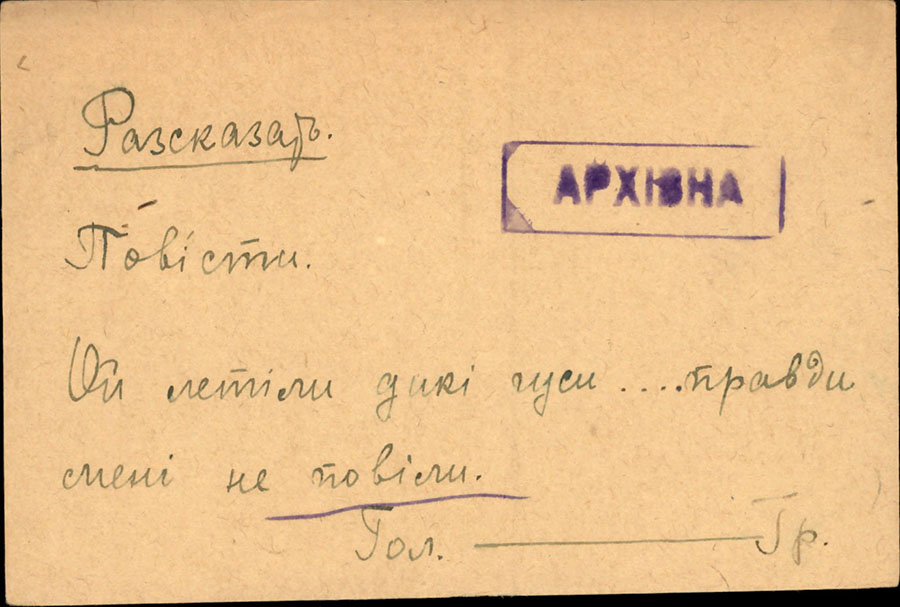 Разсказать.
АРХІВНА
Повісти.
Ой летіли дикі гуси ....правди
мені не повіли.
Гол. ——— Гр.